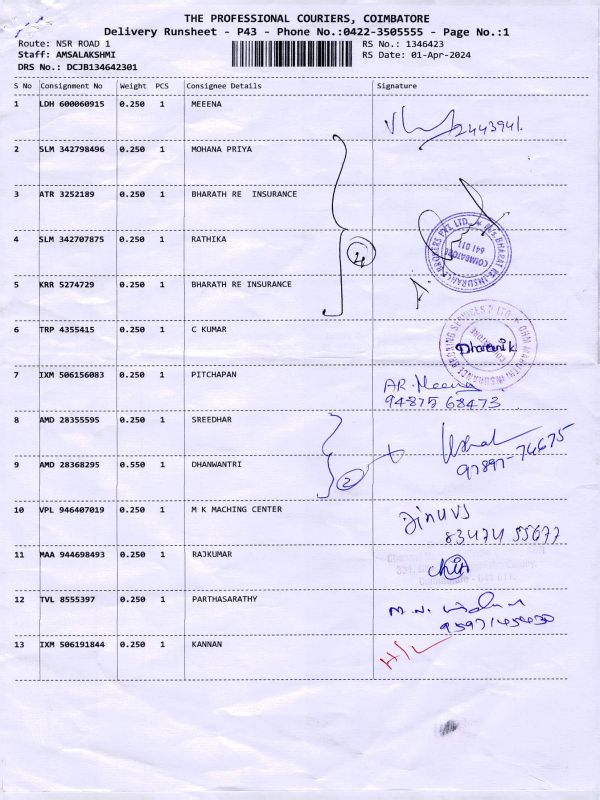 THE PROFESSIONAL COURIERS, COIMBATORE
Delivery Runsheet - P43 - Phone No.:0422-3505555 - Page No.:1
Route: NSR ROAD 1 RS No.: 1346423
Staff: AMSALAKSHMI RS Date: 01-Apr-2024
DRS No.: DCJB134642301
S No Consignment No Weight PCS Consignee Details Signature
1 LDH 600060915 0.250 1 MEEENA
2443941.
2 SLM 342798496 0.250 1 MOHANA PRIYA
3 ATR 3252189 0.250 1 BHARATH RE INSURANCE
4 SLM 342707875 0.250 1 RATHIKA
4
COIMBATORE
641 011
5 KRR 5274729 0.250 1 BHARATH RE INSURANCE
6 TRP 4355415 0.250 1 C KUMAR
7 IXM 506156083 0.250 1 PITCHAPAN
AR. Meena
94875 68473
8 AMD 28355595 0.250 1 SREEDHAR
97897-74675
9 AMD 28368295 0.550 1 DHANWANTRI
2
10 VPL 946407019 0.250 1 M K MACHING CENTER
83474 55677
11 MAA 944698493 0.250 1 RAJKUMAR
12 TVL 8555397 0.250 1 PARTHASARATHY
13 IXM 506191844 0.250 1 KANNAN